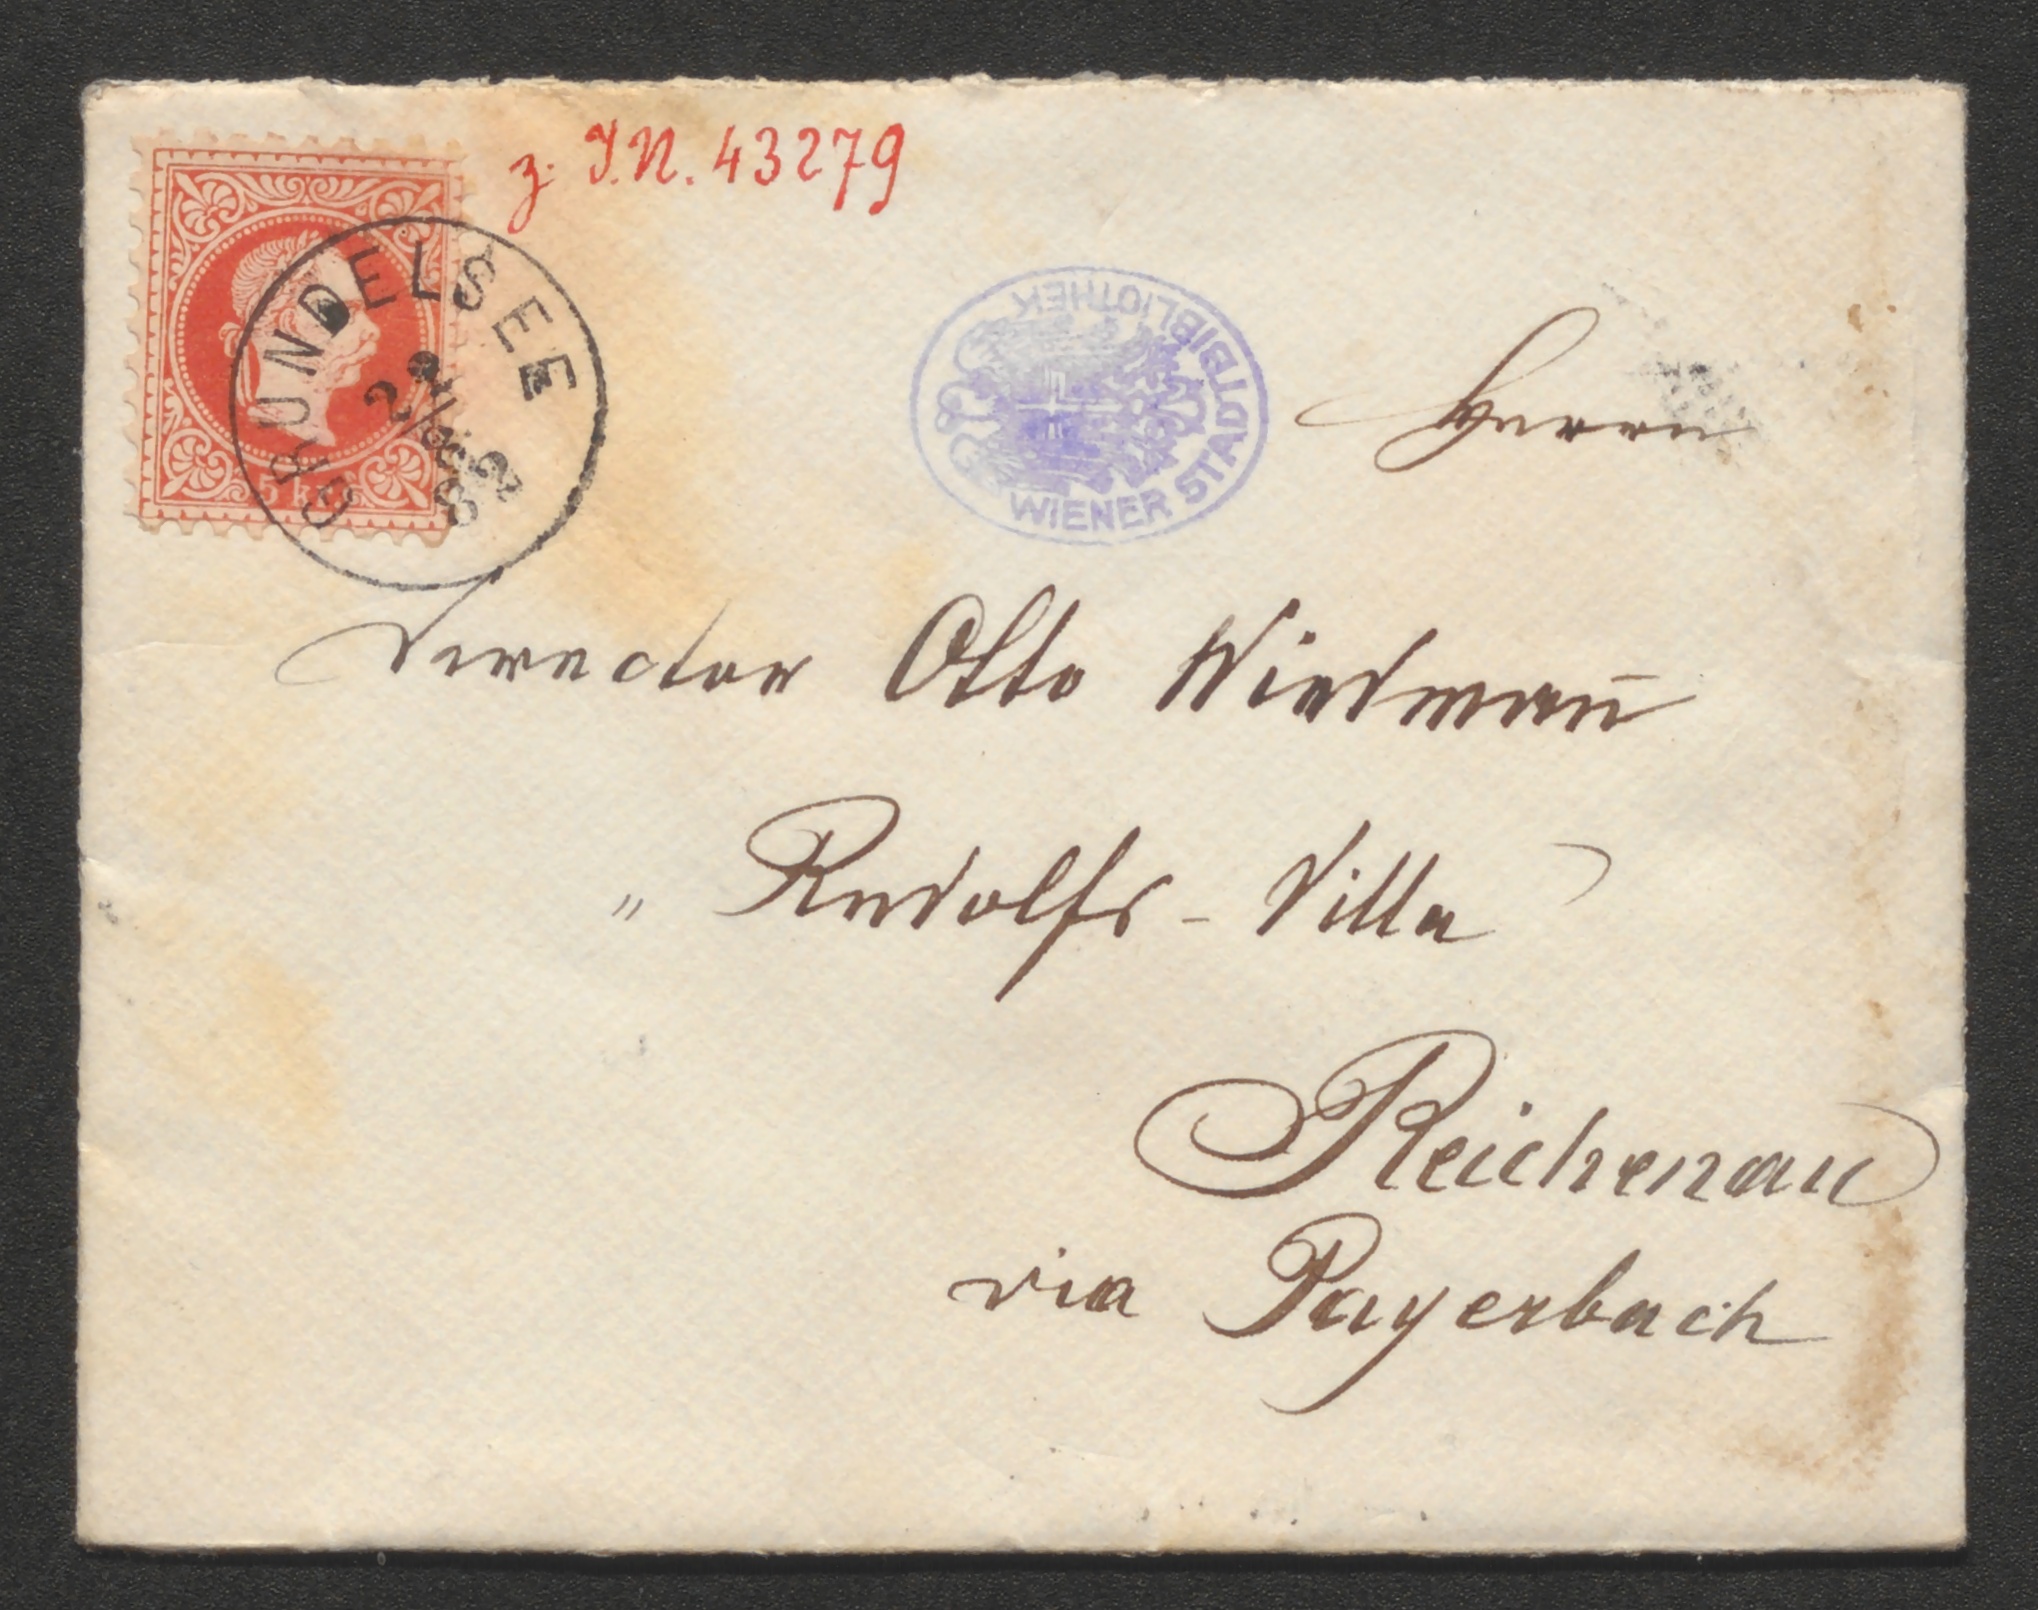 z. I.N. 43279
5 kr
GRUNDELSEE
82
WIENER STADTBIBLIOTHEK
Herrn
Director Otto Wiedmañ
„ Rudolfs - Villa
Reichenau
via Payerbach